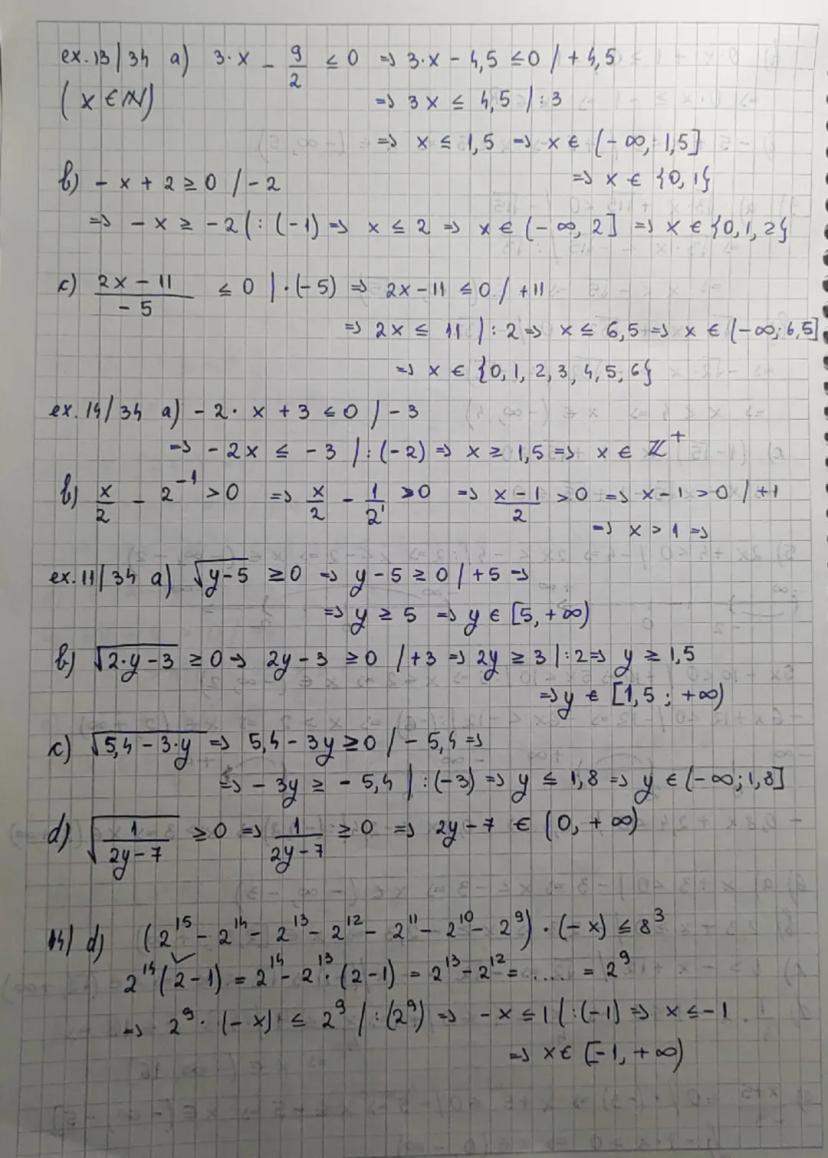 ex. 13/34 a) 3·x - 9/2 ≤ 0 => 3·x - 4,5 ≤ 0 / + 4,5
(x ∈ N) => 3x ≤ 4,5 / : 3
=> x ≤ 1,5 => x ∈ (-∞, 1,5]
b) - x + 2 ≥ 0 / -2 => x ∈ {0, 1}
=> - x ≥ -2 / : (-1) => x ≤ 2 => x ∈ (-∞, 2] => x ∈ {0, 1, 2}
c) (2x - 11)/(-5) ≤ 0 | · (-5) => 2x - 11 ≤ 0 / + 11
=> 2x ≤ 11 / : 2 => x ≤ 6,5 => x ∈ (-∞; 6,5]
=> x ∈ {0, 1, 2, 3, 4, 5, 6}
ex. 14/34 a) - 2 · x + 3 ≤ 0 / - 3
=> - 2x ≤ - 3 / : (-2) => x ≥ 1,5 => x ∈ ℤ⁺
b) x/2 - 2⁻¹ > 0 => x/2 - 1/2¹ > 0 => (x - 1)/2 > 0 => x - 1 > 0 / + 1
=> x > 1 =>
ex. 11/34 a) √(y-5) ≥ 0 => y - 5 ≥ 0 / + 5 =>
=> y ≥ 5 => y ∈ [5, +∞)
b) √(2·y-3) ≥ 0 => 2y - 3 ≥ 0 / + 3 => 2y ≥ 3 | : 2 => y ≥ 1,5
=> y ∈ [1,5 ; +∞)
c) √(5,4-3·y) => 5,4 - 3y ≥ 0 / - 5,4 =>
=> - 3y ≥ - 5,4 / : (-3) => y ≤ 1,8 => y ∈ (-∞; 1,8]
d) √(1/(2y-7)) ≥ 0 => 1/(2y-7) ≥ 0 => 2y - 7 ∈ (0, +∞)
14/ d) (2¹⁵ - 2¹⁴ - 2¹³ - 2¹² - 2¹¹ - 2¹⁰ - 2⁹) · (-x) ≤ 8³
2¹⁴(2-1) = 2¹⁴ - 2¹³ · (2-1) = 2¹³ - 2¹² = .... = 2⁹
=> 2⁹ · (-x) ≤ 2⁹ / : (2⁹) => - x ≤ 1 / : (-1) => x ≤ -1
=> x ∈ [-1, +∞)